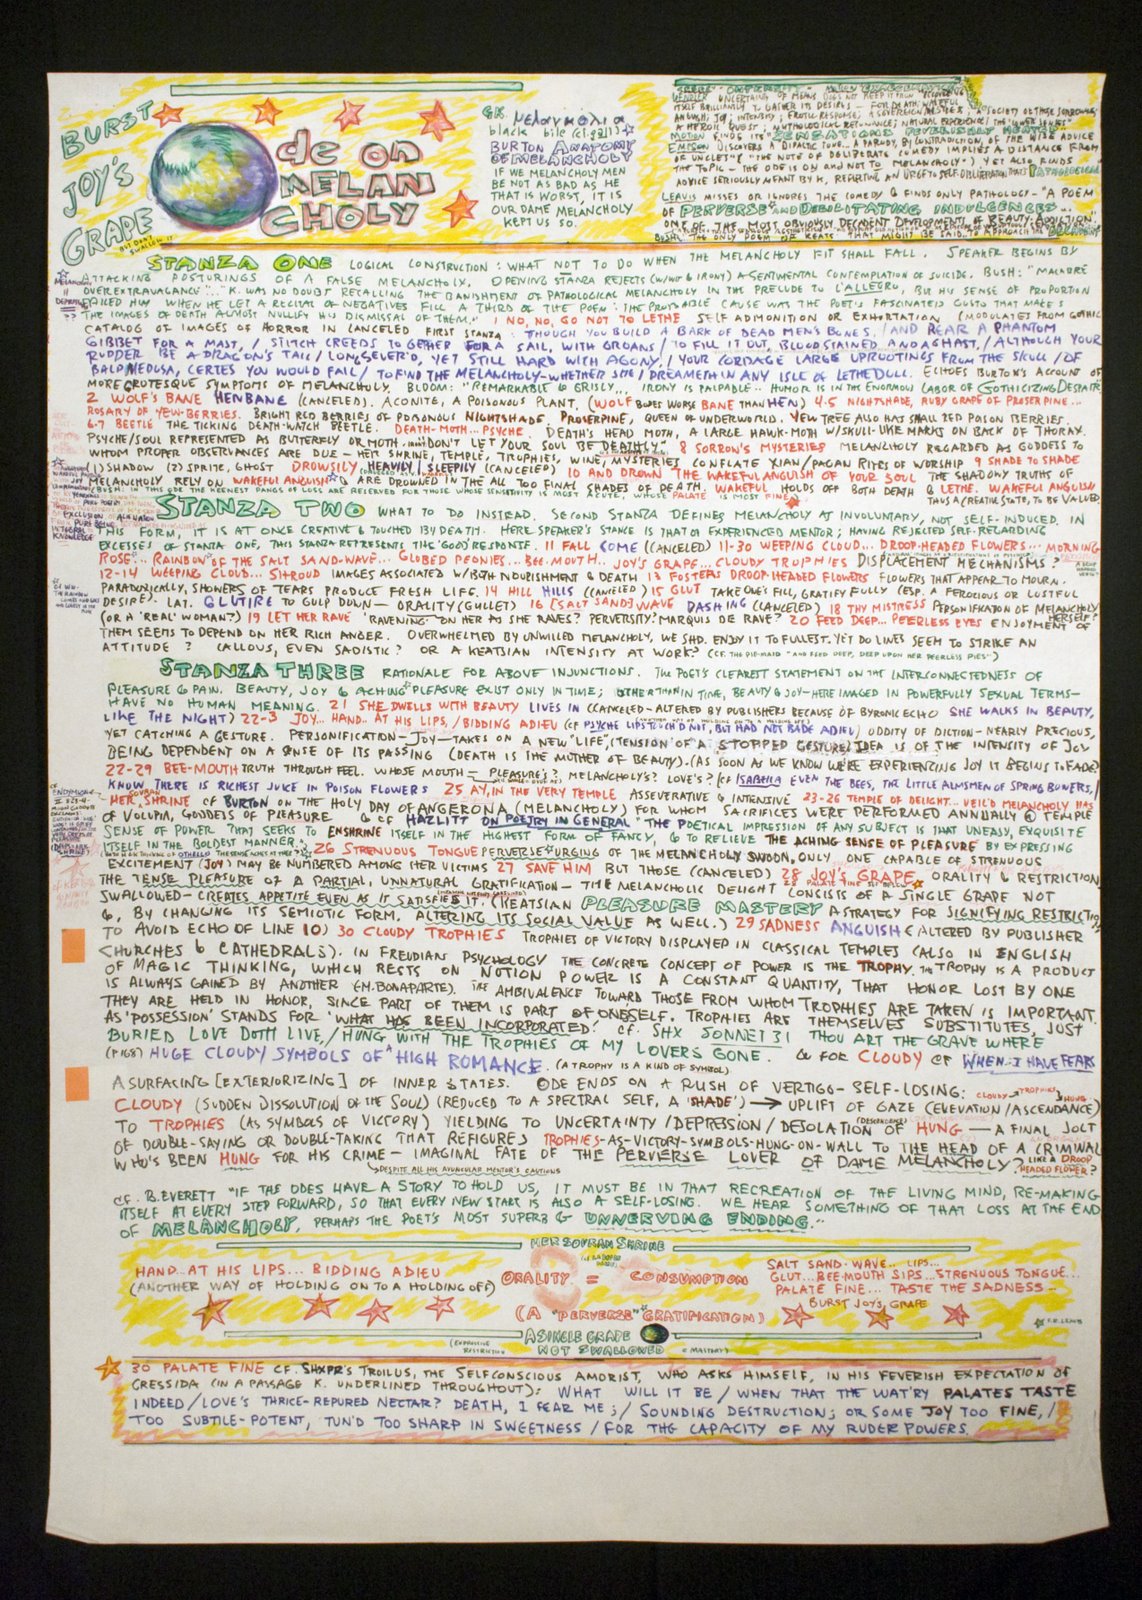 BURST
JOY'S
GRAPE
BUT DON'T
SWALLOW IT
de on
MELAN
CHOLY
GK. Μελαγχολια
black bile (cf. gall)
BURTON ANATOMY
OF MELANCHOLY
IF WE MELANCHOLY MEN
BE NOT AS BAD AS HE
THAT IS WORST, IT IS
OUR DAME MELANCHOLY
KEPT US SO.
VENDLER UNCERTAINTY OF MEANS DOES NOT KEEP IT FROM
ITSELF BRILLIANTLY TO GATHER ITS DESIRES - FOR DEATH; WAKEFUL
ANGUISH; JOY; INTENSITY; EROTIC RESPONSE; A SOVEREIGN MISTRESS; SOCIETY OF THOSE SORROWING;
A HEROIC QUEST; MYTHOLOGICAL RESONANCES; NATURAL EXPERIENCE/
MOTION FINDS ITS SENSATIONS FEVERISHLY HEATED
EMPSON DISCOVERS A DIDACTIC TONE... A PARODY, BY CONTRADICTION, OF THE WISE ADVICE
OF UNCLES" ("THE NOTE OF DELIBERATE COMEDY IMPLIES A DISTANCE FROM
THE TOPIC - THE ODE IS ON AND NOT TO MELANCHOLY") YET ALSO FINDS PATHOLOGICAL
ADVICE SERIOUSLY MEANT BY K, REPEATING AN URGE TO SELF-OBLITERATION THAT'S
LEAVIS MISSES OR IGNORES THE COMEDY & FINDS ONLY PATHOLOGY - "A POEM
OF PERVERSE AND DEBILITATING INDULGENCES...
ONE OF THE MOST OBVIOUSLY DECADENT DEVELOPMENTS OF BEAUTY-ADDICTION"
BUSH: THE ONLY POEM OF KEATS' THAT MIGHT BE SAID TO APPROACH THE DECADENT
STANZA ONE LOGICAL CONSTRUCTION: WHAT NOT TO DO WHEN THE MELANCHOLY FIT SHALL FALL. SPEAKER BEGINS BY
ATTACKING POSTURINGS OF A FALSE MELANCHOLY. OPENING STANZA REJECTS (W/WIT & IRONY) A SENTIMENTAL CONTEMPLATION OF SUICIDE. BUSH: "MACABRE
OVEREXTRAVAGANCE"... "K. WAS NO DOUBT RECALLING THE BANISHMENT OF PATHOLOGICAL MELANCHOLY IN THE PRELUDE TO L'ALLEGRO, BUT HIS SENSE OF PROPORTION
FAILED HIM WHEN HE LET A RECITAL OF NEGATIVES FILL A THIRD OF THE POEM: THE PROBABLE CAUSE WAS THE POET'S FASCINATED GUSTO THAT MAKES
THE IMAGES OF DEATH ALMOST NULLIFY HIS DISMISSAL OF THEM." 1 NO, NO, GO NOT TO LETHE SELF ADMONITION OR EXHORTATION (MODULATES FROM GOTHIC
CATALOG OF IMAGES OF HORROR IN CANCELED FIRST STANZA: THOUGH YOU BUILD A BARK OF DEAD MEN'S BONES, / AND REAR A PHANTOM
GIBBET FOR A MAST, / STITCH CREEDS TOGETHER FOR A SAIL, WITH GROANS / TO FILL IT OUT, BLOODSTAINED AND AGHAST, / ALTHOUGH YOUR
RUDDER BE A DRAGON'S TAIL / LONG SEVER'D, YET STILL HARD WITH AGONY, / YOUR CORDAGE LARGE UPROOTINGS FROM THE SKULL / OF
BALD MEDUSA, CERTES YOU WOULD FAIL / TO FIND THE MELANCHOLY - WHETHER SHE / DREAMETH IN ANY ISLE OF LETHE DULL. ECHOES BURTON'S ACCOUNT OF
MORE GROTESQUE SYMPTOMS OF MELANCHOLY. BLOOM: "REMARKABLE & GRISLY... IRONY IS PALPABLE.. HUMOR IS IN THE ENORMOUS LABOR OF GOTHICIZING DESPAIR
2 WOLF'S BANE HENBANE (CANCELED). ACONITE, A POISONOUS PLANT. (WOLF BODES WORSE BANE THAN HEN) 4-5 NIGHTSHADE, RUBY GRAPE OF PROSERPINE...
ROSARY OF YEW-BERRIES. BRIGHT RED BERRIES OF POISONOUS NIGHTSHADE. PROSERPINE, QUEEN OF UNDERWORLD. YEW TREE ALSO HAS SMALL RED POISON BERRIES.
6-7 BEETLE THE TICKING DEATH-WATCH BEETLE. DEATH-MOTH... PSYCHE. DEATH'S HEAD MOTH, A LARGE HAWK-MOTH W/SKULL-LIKE MARKS ON BACK OF THORAX.
PSYCHE/SOUL REPRESENTED AS BUTTERFLY OR MOTH. DON'T LET YOUR SOUL BE DEATHLY." 8 SORROW'S MYSTERIES MELANCHOLY REGARDED AS GODDESS TO
WHOM PROPER OBSERVANCES ARE DUE - HER SHRINE, TEMPLE, TROPHIES, WINE, MYSTERIES CONFLATE XIAN/PAGAN RITES OF WORSHIP 9 SHADE TO SHADE
(1) SHADOW (2) SPRITE, GHOST DROWSILY, HEAVILY/SLEEPILY (CANCELED) 10 AND DROWN THE WAKEFUL ANGUISH OF YOUR SOUL THE SHADOWY TRUTHS OF
MELANCHOLY RELY ON WAKEFUL ANGUISH & ARE DROWNED IN THE ALL TOO FINAL SHADES OF DEATH. WAKEFUL HOLDS OFF BOTH DEATH & LETHE. WAKEFUL ANGUISH
BUSH: IN THIS ODE THE KEENEST PANGS OF LOSS ARE RESERVED FOR THOSE WHOSE SENSITIVITY IS MOST ACUTE, WHOSE PALATE IS MOST FINE A CREATIVE STATE, TO BE VALUED
STANZA TWO WHAT TO DO INSTEAD. SECOND STANZA DEFINES MELANCHOLY AS INVOLUNTARY, NOT SELF-INDUCED. IN
THIS FORM, IT IS AT ONCE CREATIVE & TOUCHED BY DEATH. HERE SPEAKER'S STANCE IS THAT OF EXPERIENCED MENTOR; HAVING REJECTED SELF-REGARDING
EXCESSES OF STANZA ONE, THIS STANZA REPRESENTS THE 'GOOD' RESPONSE. 11 FALL COME (CANCELED) 11-30 WEEPING CLOUD... DROOP-HEADED FLOWERS... MORNING
ROSE... RAINBOW OF THE SALT SAND-WAVE... GLOBED PEONIES... BEE-MOUTH... JOY'S GRAPE... CLOUDY TROPHIES DISPLACEMENT MECHANISMS?
12-14 WEEPING CLOUD... SHROUD IMAGES ASSOCIATED W/BOTH NOURISHMENT & DEATH 13 FOSTERS DROOP-HEADED FLOWERS FLOWERS THAT APPEAR TO MOURN.
PARADOXICALLY, SHOWERS OF TEARS PRODUCE FRESH LIFE. 14 HILL HILLS (CANCELED) 15 GLUT TAKE ONE'S FILL, GRATIFY FULLY (ESP. A FEROCIOUS OR LUSTFUL
DESIRE). LAT. GLUTIRE TO GULP DOWN - ORALITY (GULLET) 16 [SALT SAND] WAVE DASHING (CANCELED) 18 THY MISTRESS PERSONIFICATION OF MELANCHOLY HERSELF?
(OR A 'REAL' WOMAN?) 19 LET HER RAVE 'RAVENING' ON HER AS SHE RAVES? PERVERSITY? MARQUIS DE RAVE? 20 FEED DEEP... PEERLESS EYES ENJOYMENT OF
THEM SEEMS TO DEPEND ON HER RICH ANGER. OVERWHELMED BY UNWILLED MELANCHOLY, WE SHD. ENJOY IT TO FULLEST. YET DO LINES SEEM TO STRIKE AN
ATTITUDE? CALLOUS, EVEN SADISTIC? OR A KEATSIAN INTENSITY AT WORK? (CF. THE PIE-MAID "AND FEED DEEP, DEEP UPON HER PEERLESS PIES")
STANZA THREE RATIONALE FOR ABOVE INJUNCTIONS. THE POET'S CLEAREST STATEMENT ON THE INTERCONNECTEDNESS OF
PLEASURE & PAIN. BEAUTY, JOY & ACHING PLEASURE EXIST ONLY IN TIME; OTHER THAN IN TIME, BEAUTY & JOY - HERE IMAGED IN POWERFULLY SEXUAL TERMS -
HAVE NO HUMAN MEANING. 21 SHE DWELLS WITH BEAUTY LIVES IN (CANCELED - ALTERED BY PUBLISHERS BECAUSE OF BYRONIC ECHO SHE WALKS IN BEAUTY,
LIKE THE NIGHT) 22-3 JOY... HAND.. AT HIS LIPS, / BIDDING ADIEU (CF PSYCHE LIPS TOUCH'D NOT, BUT HAD NOT BADE ADIEU) ODDITY OF DICTION - NEARLY PRECIOUS,
YET CATCHING A GESTURE. PERSONIFICATION - JOY - TAKES ON A NEW "LIFE", (TENSION OF A STOPPED GESTURE) IDEA IS OF THE INTENSITY OF JOY
BEING DEPENDENT ON A SENSE OF ITS PASSING (DEATH IS THE MOTHER OF BEAUTY). (AS SOON AS WE KNOW WE'RE EXPERIENCING JOY IT BEGINS TO FADE)
22-29 BEE-MOUTH TRUTH THROUGH FEEL. WHOSE MOUTH - PLEASURE'S? MELANCHOLY'S? LOVE'S? (CF ISABELLA EVEN THE BEES, THE LITTLE ALMSMEN OF SPRING BOWERS, /
KNOW THERE IS RICHEST JUICE IN POISON FLOWERS 25 AY, IN THE VERY TEMPLE ASSEVERATIVE & INTENSIVE 23-26 TEMPLE OF DELIGHT... VEIL'D MELANCHOLY HAS
HER SOVRAN SHRINE CF BURTON ON THE HOLY DAY OF ANGERONA (MELANCHOLY) FOR WHOM SACRIFICES WERE PERFORMED ANNUALLY @ TEMPLE
OF VOLUPIA, GODDESS OF PLEASURE & CF HAZLITT ON POETRY IN GENERAL "THE POETICAL IMPRESSION OF ANY SUBJECT IS THAT UNEASY, EXQUISITE
SENSE OF POWER THAT SEEKS TO ENSHRINE ITSELF IN THE HIGHEST FORM OF FANCY, & TO RELIEVE THE ACHING SENSE OF PLEASURE BY EXPRESSING
ITSELF IN THE BOLDEST MANNER." 26 STRENUOUS TONGUE PERVERSE URGING OF THE MELANCHOLY SWOON, ONLY ONE CAPABLE OF STRENUOUS
EXCITEMENT (JOY) MAY BE NUMBERED AMONG HER VICTIMS 27 SAVE HIM BUT THOSE (CANCELED) 28 JOY'S GRAPE ORALITY & RESTRICTION
THE TENSE PLEASURE OF A PARTIAL, UNNATURAL GRATIFICATION - THE MELANCHOLIC DELIGHT CONSISTS OF A SINGLE GRAPE NOT
SWALLOWED - CREATES APPETITE EVEN AS IT SATISFIES IT. (KEATSIAN PLEASURE MASTERY A STRATEGY FOR SIGNIFYING RESTRICTION
&, BY CHANGING ITS SEMIOTIC FORM, ALTERING ITS SOCIAL VALUE AS WELL.) 29 SADNESS ANGUISH (ALTERED BY PUBLISHER
TO AVOID ECHO OF LINE 10) 30 CLOUDY TROPHIES TROPHIES OF VICTORY DISPLAYED IN CLASSICAL TEMPLES (ALSO IN ENGLISH
CHURCHES & CATHEDRALS). IN FREUDIAN PSYCHOLOGY THE CONCRETE CONCEPT OF POWER IS THE TROPHY. THE TROPHY IS A PRODUCT
OF MAGIC THINKING, WHICH RESTS ON NOTION POWER IS A CONSTANT QUANTITY, THAT HONOR LOST BY ONE
IS ALWAYS GAINED BY ANOTHER (M. BONAPARTE). THE AMBIVALENCE TOWARD THOSE FROM WHOM TROPHIES ARE TAKEN IS IMPORTANT.
THEY ARE HELD IN HONOR, SINCE PART OF THEM IS PART OF ONESELF. TROPHIES ARE THEMSELVES SUBSTITUTES, JUST
AS 'POSSESSION' STANDS FOR 'WHAT HAS BEEN INCORPORATED.' CF. SHX SONNET 31 THOU ART THE GRAVE WHERE
BURIED LOVE DOTH LIVE, / HUNG WITH THE TROPHIES OF MY LOVERS GONE. & FOR CLOUDY CF WHEN I HAVE FEARS
HUGE CLOUDY SYMBOLS OF A HIGH ROMANCE. (A TROPHY IS A KIND OF SYMBOL)
A SURFACING [EXTERIORIZING] OF INNER STATES. ODE ENDS ON A RUSH OF VERTIGO - SELF-LOSING: CLOUDY → TROPHIES → HUNG
CLOUDY (SUDDEN DISSOLUTION OF THE SOUL) (REDUCED TO A SPECTRAL SELF, A 'SHADE') → UPLIFT OF GAZE (ELEVATION/ASCENDANCE)
TO TROPHIES (AS SYMBOLS OF VICTORY) YIELDING TO UNCERTAINTY/DEPRESSION/DESOLATION OF HUNG - A FINAL JOLT
OF DOUBLE-SAYING OR DOUBLE-TAKING THAT REFIGURES TROPHIES-AS-VICTORY-SYMBOLS-HUNG-ON-WALL TO THE HEAD OF A CRIMINAL
WHO'S BEEN HUNG FOR HIS CRIME - IMAGINAL FATE OF THE PERVERSE LOVER OF DAME MELANCHOLY? (LIKE A DROOP HEADED FLOWER?
DESPITE ALL HIS AVUNCULAR MENTOR'S CAUTIONS
CF. B. EVERETT "IF THE ODES HAVE A STORY TO HOLD US, IT MUST BE IN THAT RECREATION OF THE LIVING MIND, RE-MAKING
ITSELF AT EVERY STEP FORWARD, SO THAT EVERY NEW START IS ALSO A SELF-LOSING. WE HEAR SOMETHING OF THAT LOSS AT THE END
OF MELANCHOLY, PERHAPS THE POET'S MOST SUPERB & UNNERVING ENDING."
HER SOVRAN SHRINE
HAND..AT HIS LIPS... BIDDING ADIEU
(ANOTHER WAY OF HOLDING ON TO A HOLDING OFF)
ORALITY = CONSUMPTION
(A "PERVERSE" GRATIFICATION)
SALT SAND-WAVE.. LIPS...
GLUT... BEE-MOUTH SIPS... STRENUOUS TONGUE...
PALATE FINE... TASTE THE SADNESS...
BURST JOY'S GRAPE
F.R. LEAVIS
(EXPRESSIVE RESTRICTION
A SINGLE GRAPE
NOT SWALLOWED
= MASTERY)
30 PALATE FINE CF. SHXPR'S TROILUS, THE SELFCONSCIOUS AMORIST, WHO ASKS HIMSELF, IN HIS FEVERISH EXPECTATION OF
CRESSIDA (IN A PASSAGE K. UNDERLINED THROUGHOUT): WHAT WILL IT BE / WHEN THAT THE WAT'RY PALATES TASTE
INDEED / LOVE'S THRICE-REPURED NECTAR? DEATH, I FEAR ME; / SOUNDING DESTRUCTION; OR SOME JOY TOO FINE, /
TOO SUBTILE-POTENT, TUN'D TOO SHARP IN SWEETNESS / FOR THE CAPACITY OF MY RUDER POWERS.